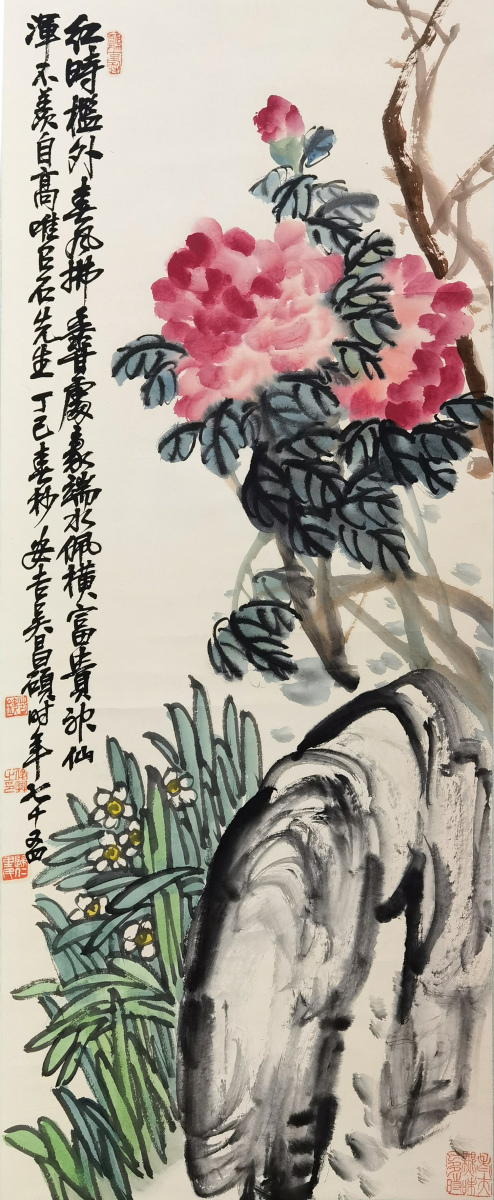 紅時檻外春風拂香處豪端水佩橫富貴神仙
渾不羨自高唯石先生 丁巳春杪安吉吳昌碩時年七十四